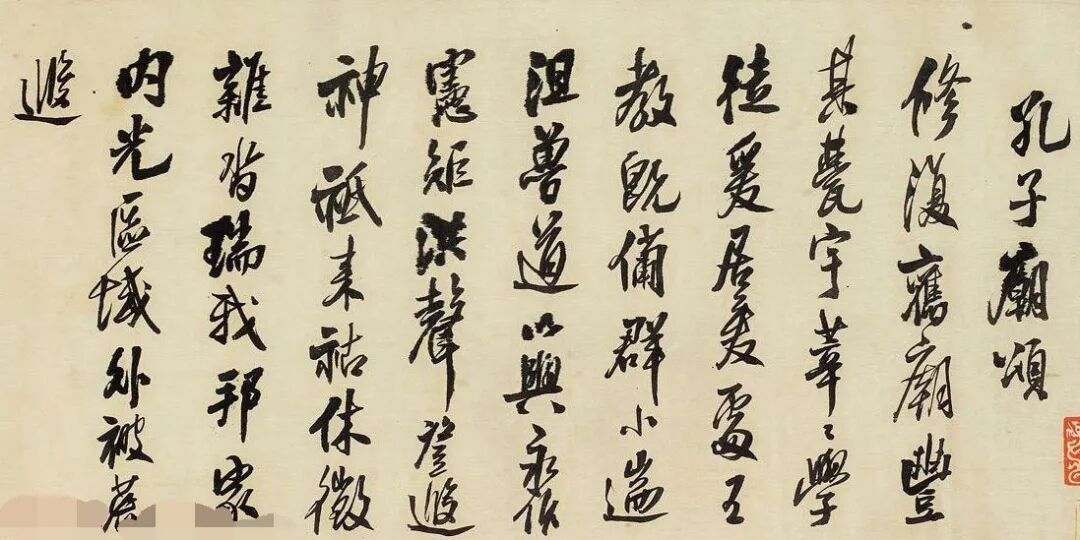 孔子廟頌
修復舊廟豐
其甍宇莘〻學
徒爰居爰處王
教既備群小遄
沮魯道以興永作
憲矩洪聲登遐
神祇来祜休徵
雜沓瑞我邦家
内光區域外被荒
遐